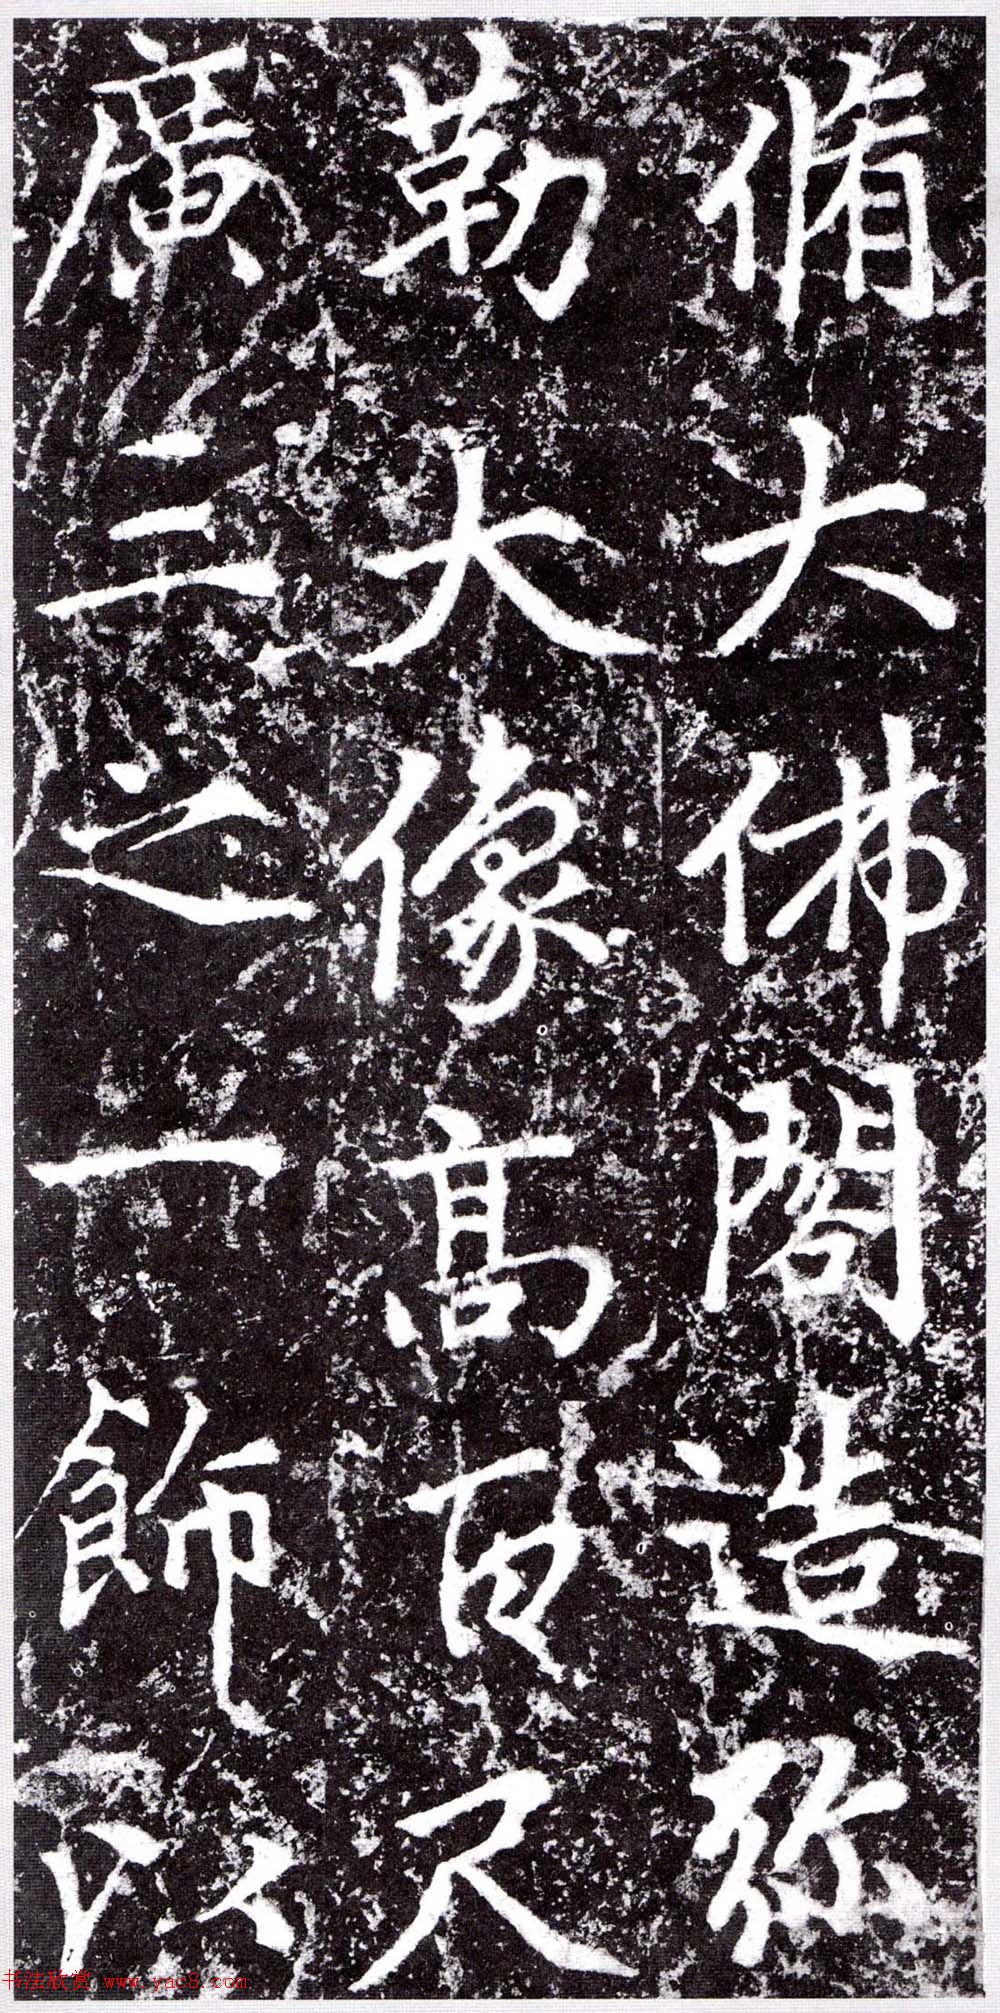 脩大佛閣造弥
勒大像高百尺
廣三之一飾以
书法欣赏 www.yac8.com